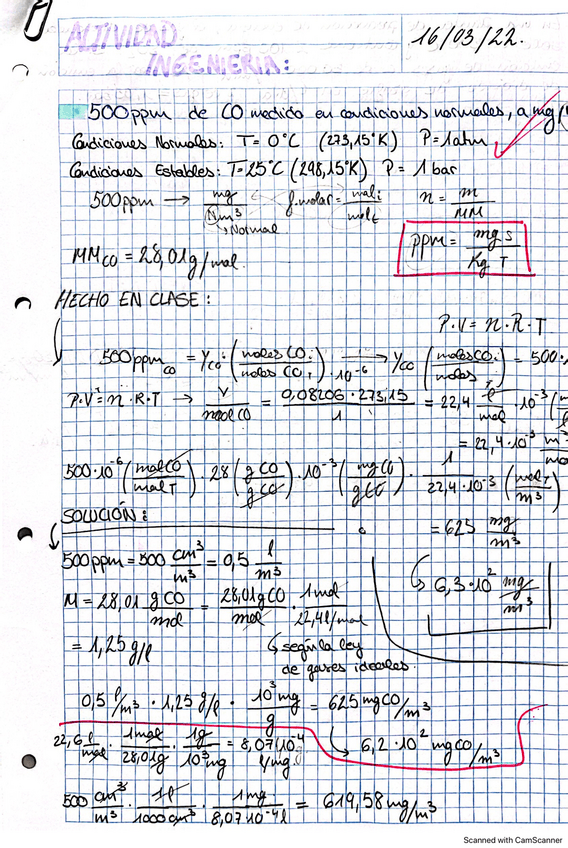 ACTIVIDAD
INGENIERIA:
16/03/22.
500ppm de CO medido en condiciones normales, a mg (
Condiciones Normales: T= 0°C (273,15°K) P=1atm
Condiciones Estables: T=25°C (298,15°K) P= 1 bar
500ppm → mg/Nm³ f.molar = moli/molt n = m/MM
↳ Normal
ppm = mg S / Kg T
MMCO = 28,01g/mol
HECHO EN CLASE:
P·V = n·R·T
500ppmCO = YCO (moles COi / moles COT) · 10⁻⁶ → YCO (moles COi / molesT) = 500·
P·V = n·R·T → V/molCO = 0,08206 · 273,15 / 1 = 22,4 l/mol · 10⁻³ (
= 22,4·10⁻³ m³/mo
500·10⁻⁶ (molCO/molT) · 28 (gCO/gCO) · 10⁻³ (mgCO/gCO) · 1/22,4·10⁻³ (molT/m³)
SOLUCIÓN:
= 625 mg/m³
500ppm = 500 cm³/m³ = 0,5 l/m³
↳ 6,3·10² mg/m³
M = 28,01 gCO/mol = 28,01gCO/mol · 1mol/22,4l/mol
= 1,25 g/l
↳ según la ley
de gases ideales.
0,5 l/m³ · 1,25 g/l · 10³mg/g = 625 mgCO/m³
22,6 l/mol · 1mol/28,01g · 1g/10³mg = 8,07·10⁻⁴ l/mg
↳ 6,2·10² mgCO/m³
500 cm³/m³ · 1l/1000cm³ · 1mg/8,07·10⁻⁴l = 619,58mg/m³
Scanned with CamScanner